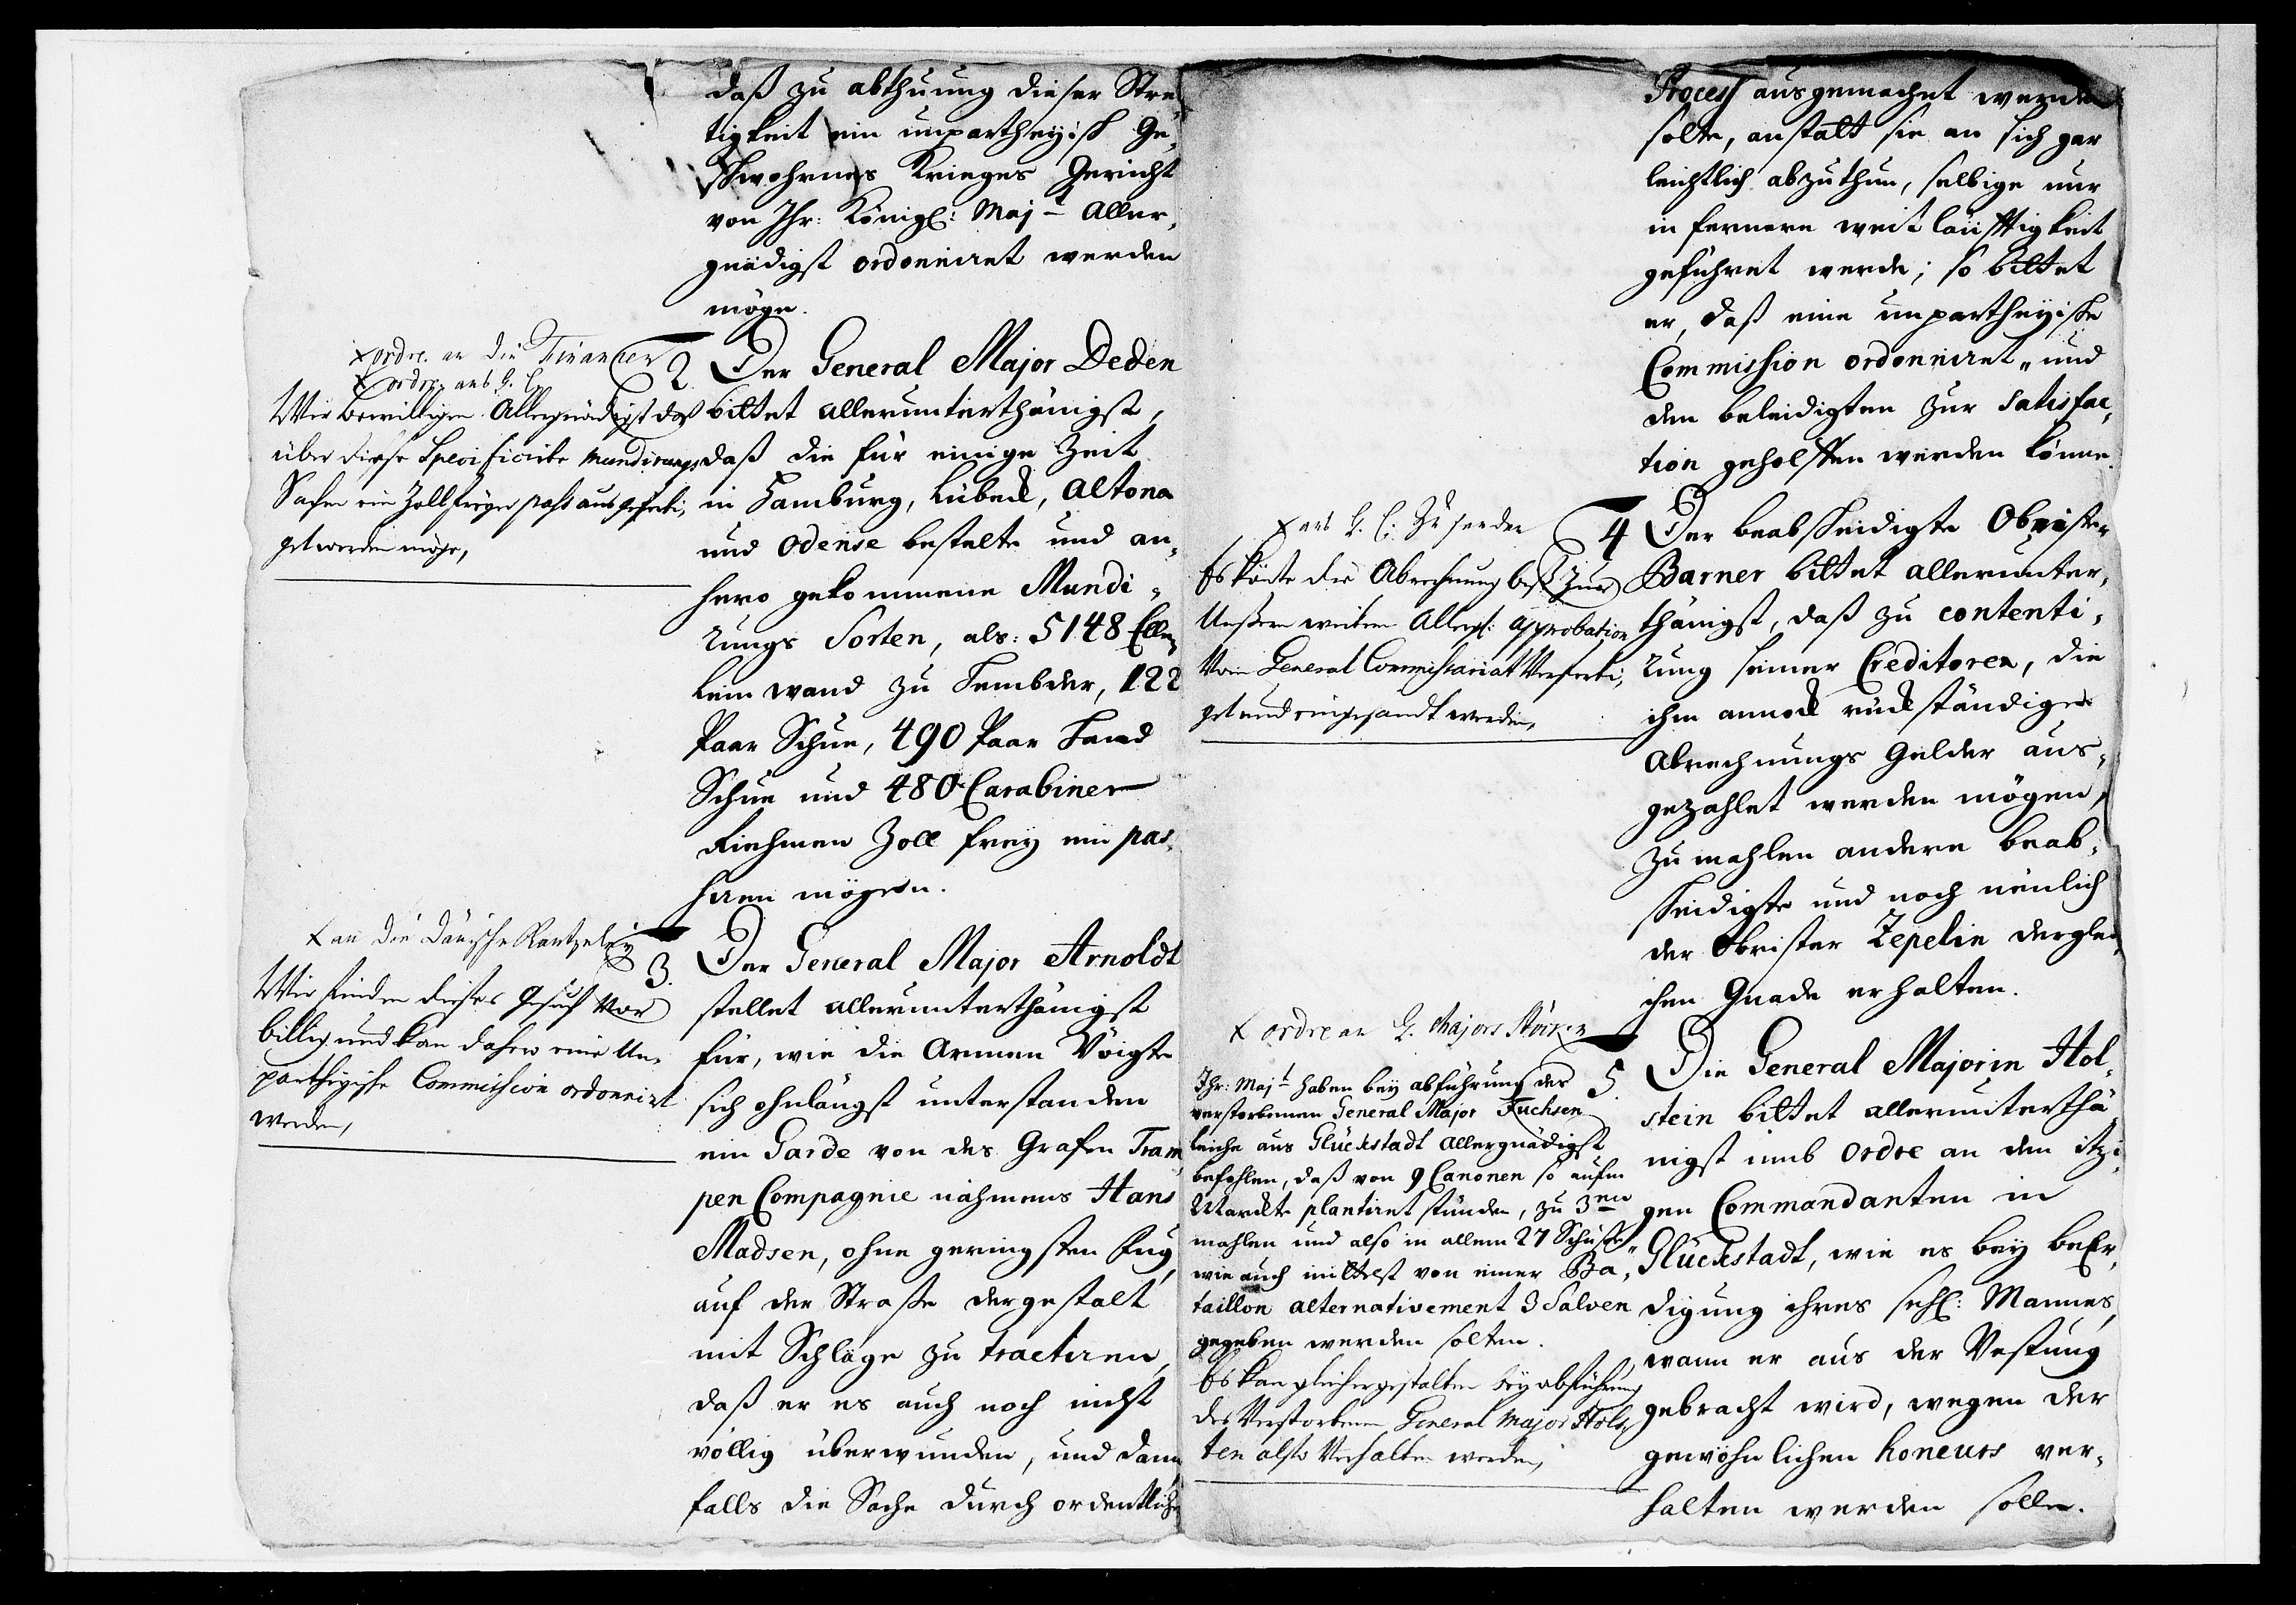 daß zu abthuung dieser Stre„
tigkeit ein unpartheyisch Ge„
schwohrnes Krieges Gericht
von Ihr: Königl: Majt Aller„
gnädigst ordonniret werden
möge.
x ordre an die Financen
x ordre ans G. C.
Wir bewilligen Allergnädigst daß
über diese Specificirte Mundirungs
Sachen ein Zollfreyer pass ausgeferti„
get werden möge,
2. Der General Major Deden
bittet allerunterthänigst,
daß die für einige Zeit
in Hamburg, Lübeck, Altona
und Odense bestelte und an„
hero gekommene Mundi„
rungs Sorten, als: 5148 Ellen
Leinwand zu Hembder, 122
Paar Schue, 490 Paar Hand
Schue und 480 Carabiner
Riehmen Zoll frey ein pas„
siren mögen.
x an die Dänische Kantzeley
Wir finden dieses Gesuch vor
billig und kan dahero eine Un„
partheyische Commission ordonnirt
werden,
3. Der General Major Arnoldt
stellet allerunterthänigst
für, wie die Armen Vöigte
sich ohnlängst unterstanden
ein Garde von des Grafen Tram„
pen Compagnie nahmens Hans
Madsen, ohne geringsten Fug,
auf der Straße dergestalt
mit Schläge zu tractiren,
daß er es auch noch nicht
völlig überwunden, und dann
falls die Sache durch ordentlichen
Process ausgemachet werden
solte, anstatt sie an sich gar
leichtlich abzuthun, selbige nur
in fernere weitläufftigkeit
geführet werde; so bittet
er, daß eine unpartheyische
Commission ordonniret„ und
den beleidigten zur Satisfac„
tion geholffen werden könne.
x ans G. C. Zu senden
Es könte die Abrechnung biß zur
Unßern weitern Allergn: Approbation
Vom General Commissariat Verferti„
get und eingesandt werden,
4 Der beabscheidigte Obrister
Barner bittet allerunter„
thänigst, daß zu contenti„
rung seiner Creditoren, die
ihm annoch rückständige
Abrechnungs Gelder aus„
gezahlet werden mögen,
zumahlen andere beab„
scheidigte und noch neulich
der Obrister Zepelin derglei„
chen Gnade erhalten.
x ordre an G. Majors Störken
Ihr: Majt haben bey abführung des
verstorbenen General Major Fuchsen
leiche aus Glückstadt Allergnädigst
befohlen, daß von 9 Canonen so aufm
Marckte plantiret stünden, zu 3en
mahlen und also in allem 27 Schüße„
wie auch mittelst von einer Ba„
taillon alternativement 3 Salven
gegeben werden solten.
Es kan gleichergestalten bey abführung
des Verstorbenen General Major Hols„
ten also Verhalten werden,
5. Die General Majorin Hol„
stein bittet allerunterthä„
nigst umb Ordre an den itzi„
gen Commandanten in
Glückstadt, wie es bey beEr„
digung ihres sehl: Mannes,
wann er aus der Vestung
gebracht wird, wegen der
gewöhnlichen honeurs ver„
halten werden solle.